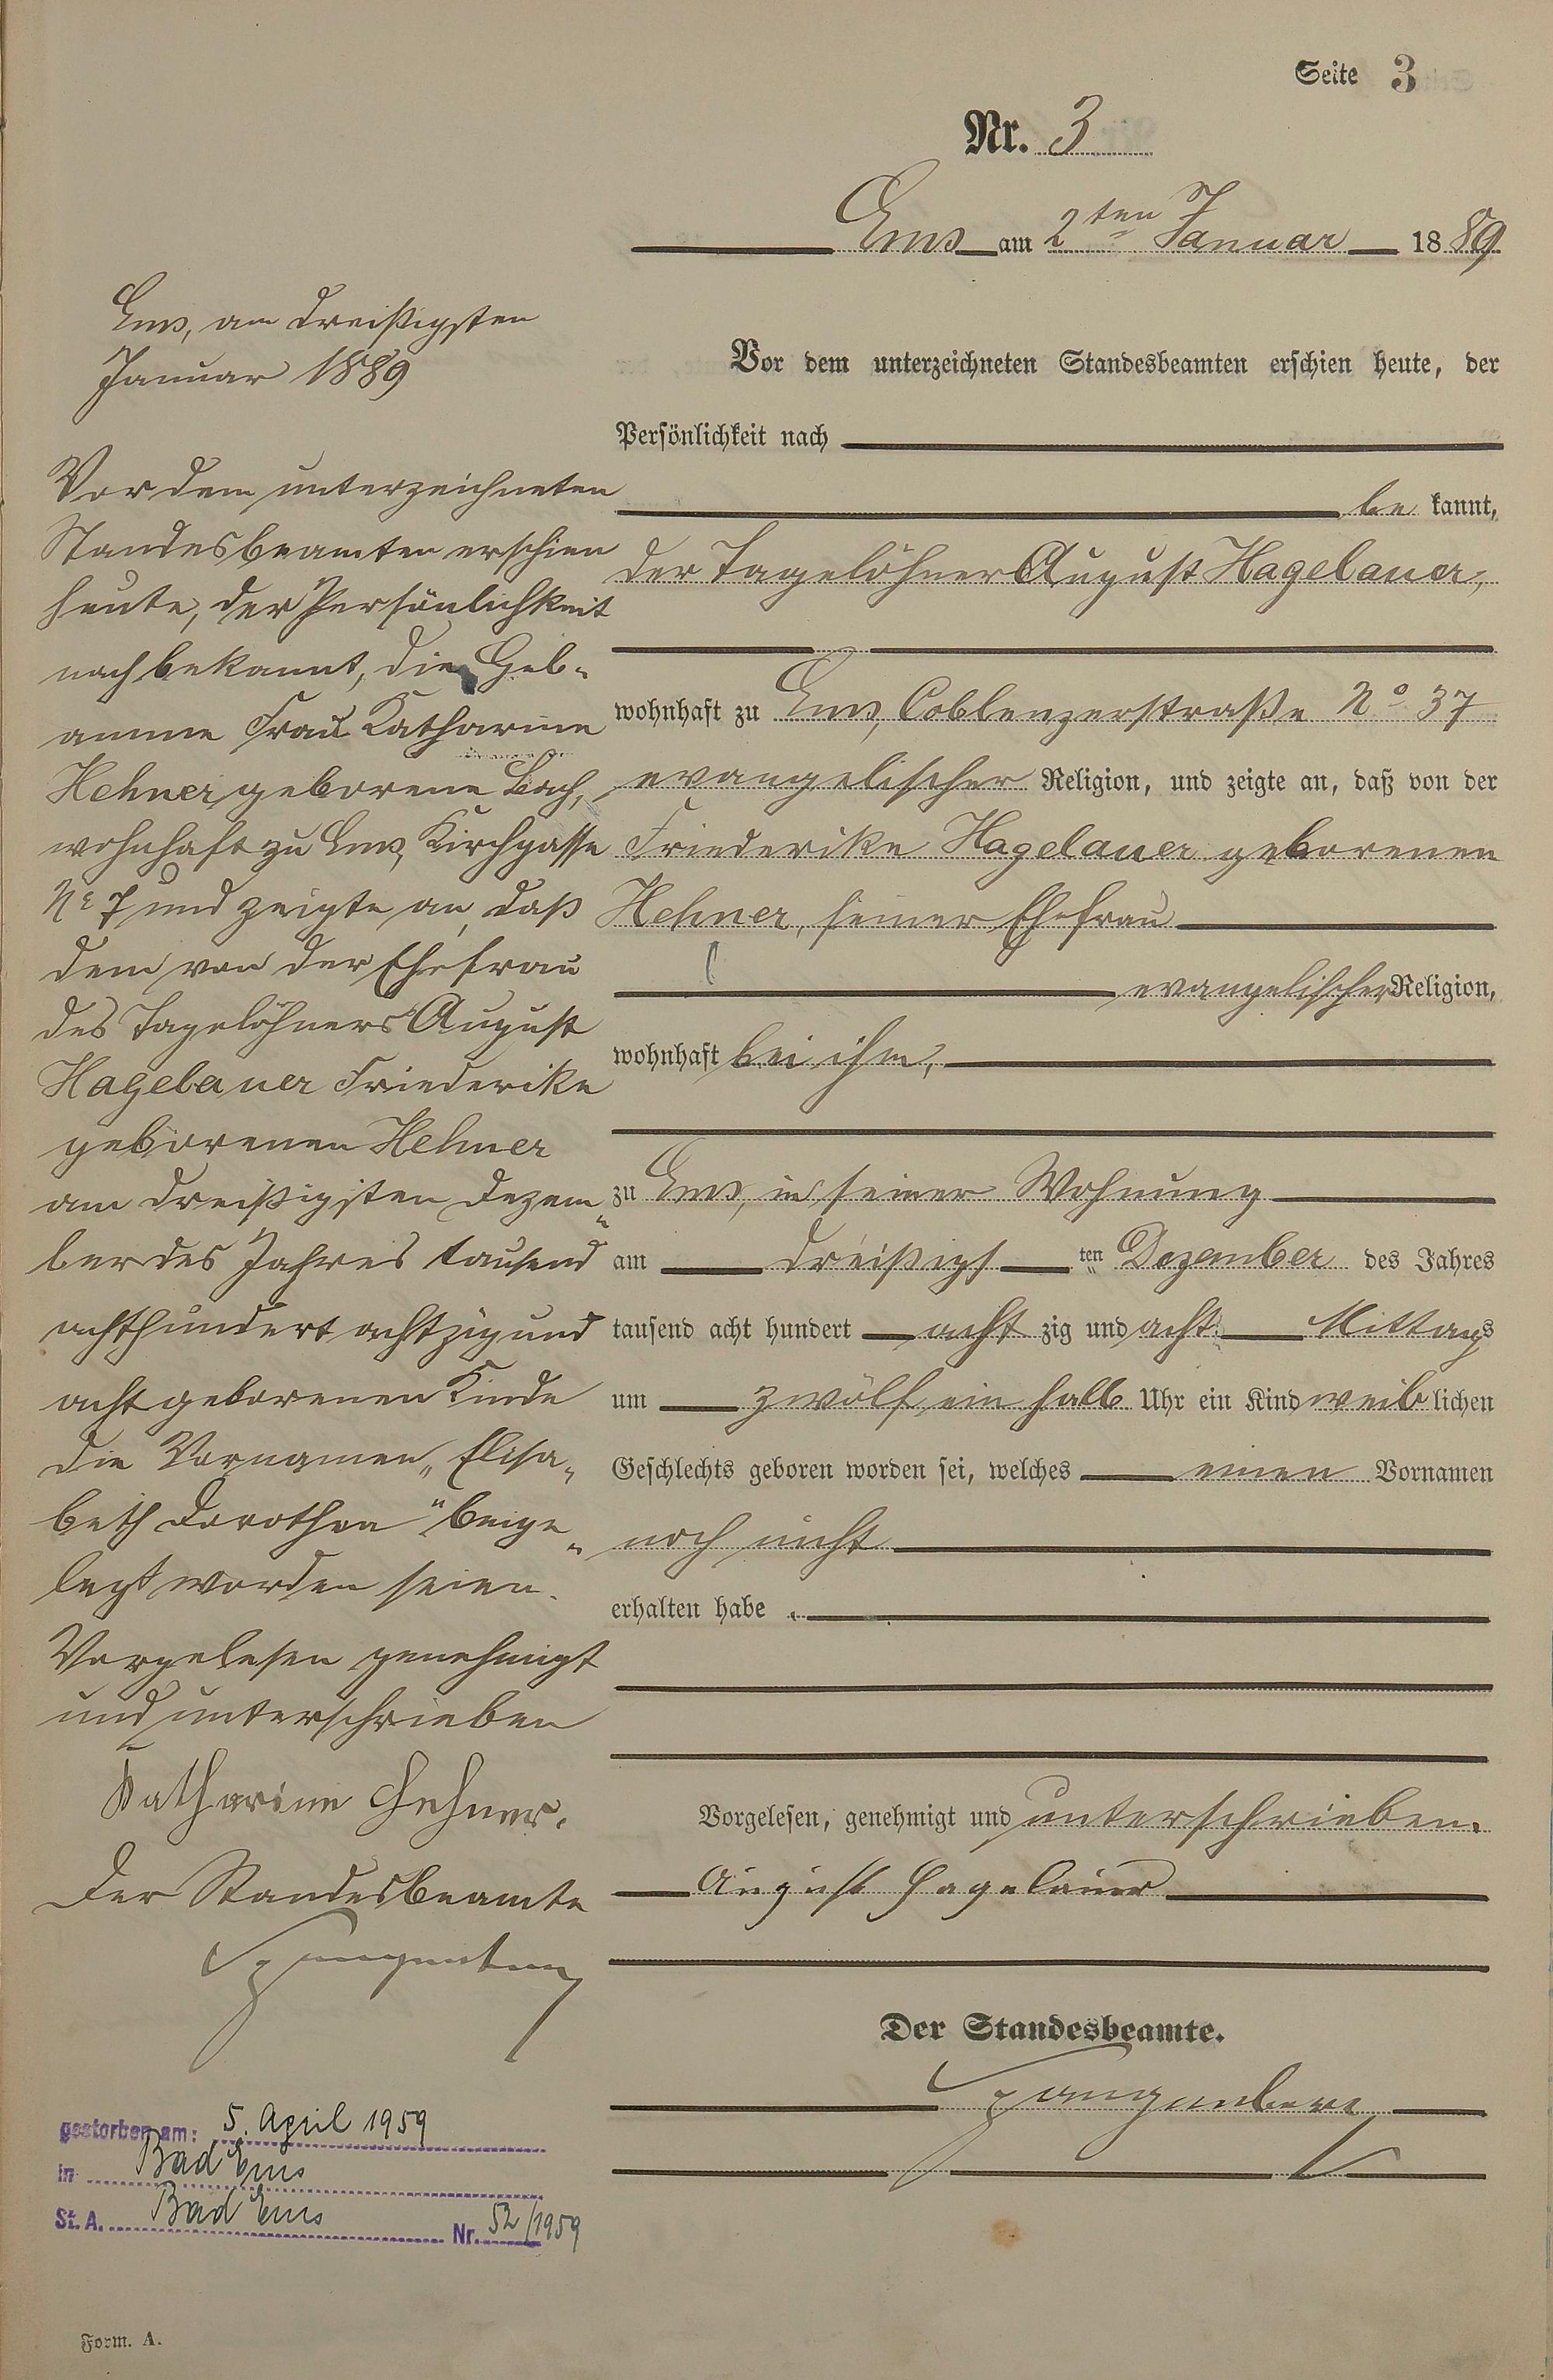 Seite 3
Nr. 3
Ems am 2ten Januar 1889
Vor dem unterzeichneten Standesbeamten erschien heute, der
Persönlichkeit nach
be kannt,
der Tagelöhner August Hagelauer,
wohnhaft zu Ems, Coblenzerstraße No 37
evangelischer Religion, und zeigte an, daß von der
Friederike Hagelauer geborenen
Hehner, seiner Ehefrau
evangelischer Religion,
wohnhaft bei ihm,
zu Ems, in seiner Wohnung
am dreißigs ten Dezember des Jahres
tausend acht hundert acht zig und acht Mittags
um zwölf ein halb Uhr ein Kind weib lichen
Geschlechts geboren worden sei, welches einen Vornamen
noch nicht
erhalten habe.
Vorgelesen, genehmigt und unterschrieben.
August Hagelauer
Der Standesbeamte.
Ems, am dreißigsten
Januar 1889
Vor dem unterzeichneten
Standesbeamten erschien
heute, der Persönlichkeit
nach bekannt, die Heb-
amme Frau Katharine
Hehner geborene Bach,
wohnhaft zu Ems, Kirchgasse
No 7 und zeigte an, daß
dem von der Ehefrau
des Tagelöhners August
Hagelauer Friederike
geborenen Hehner
am dreißigsten Dezem-
ber des Jahres tausend
achthundert achtzig und
acht geborenen Kinde
die Vornamen „Elisa-
beth Dorothea" beige-
legt worden seien.
Vorgelesen genehmigt
und unterschrieben
Katharine Hehner.
Der Standesbeamte
gestorben am: 5. April 1959
in Bad Ems
St. A. Bad Ems Nr. 52/1959
Form. A.